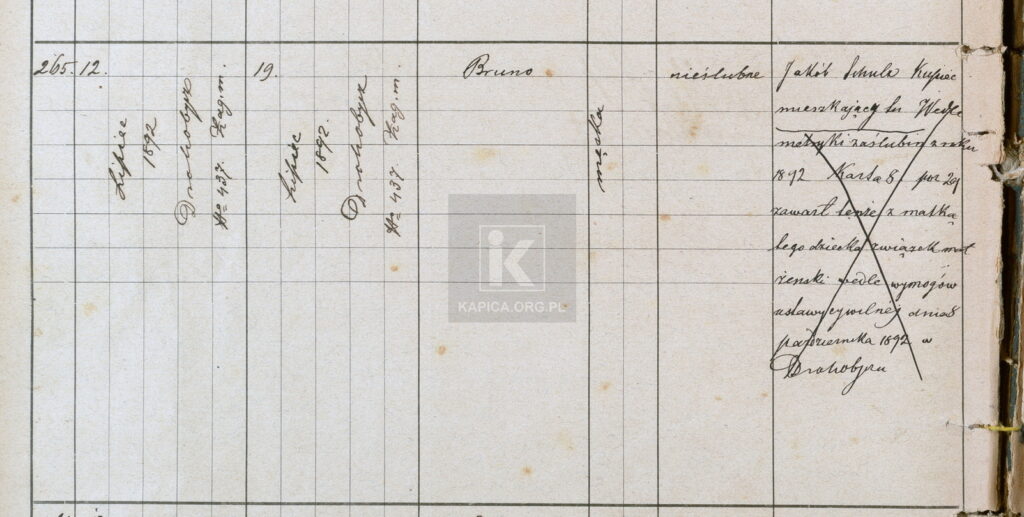 265.
12.
Lipiec
1892
Drohobycz
№ 437. Zag. m.
19.
Lipiec
1892.
Drohobycz
№ 437 Zag. m.
Bruno
męska
nieślubne
Jakób Schulz Kupiec
mieszkający tu Wedle
metryki zaślubin z roku
1892 Karta 8 poz 29
zawarł tenże z matką
tego dziecka związek mał
żenski wedle wymogów
ustawy cywilnej dnia 8
października 1892 w
Drohobyczu
K
KAPICA.ORG.PL